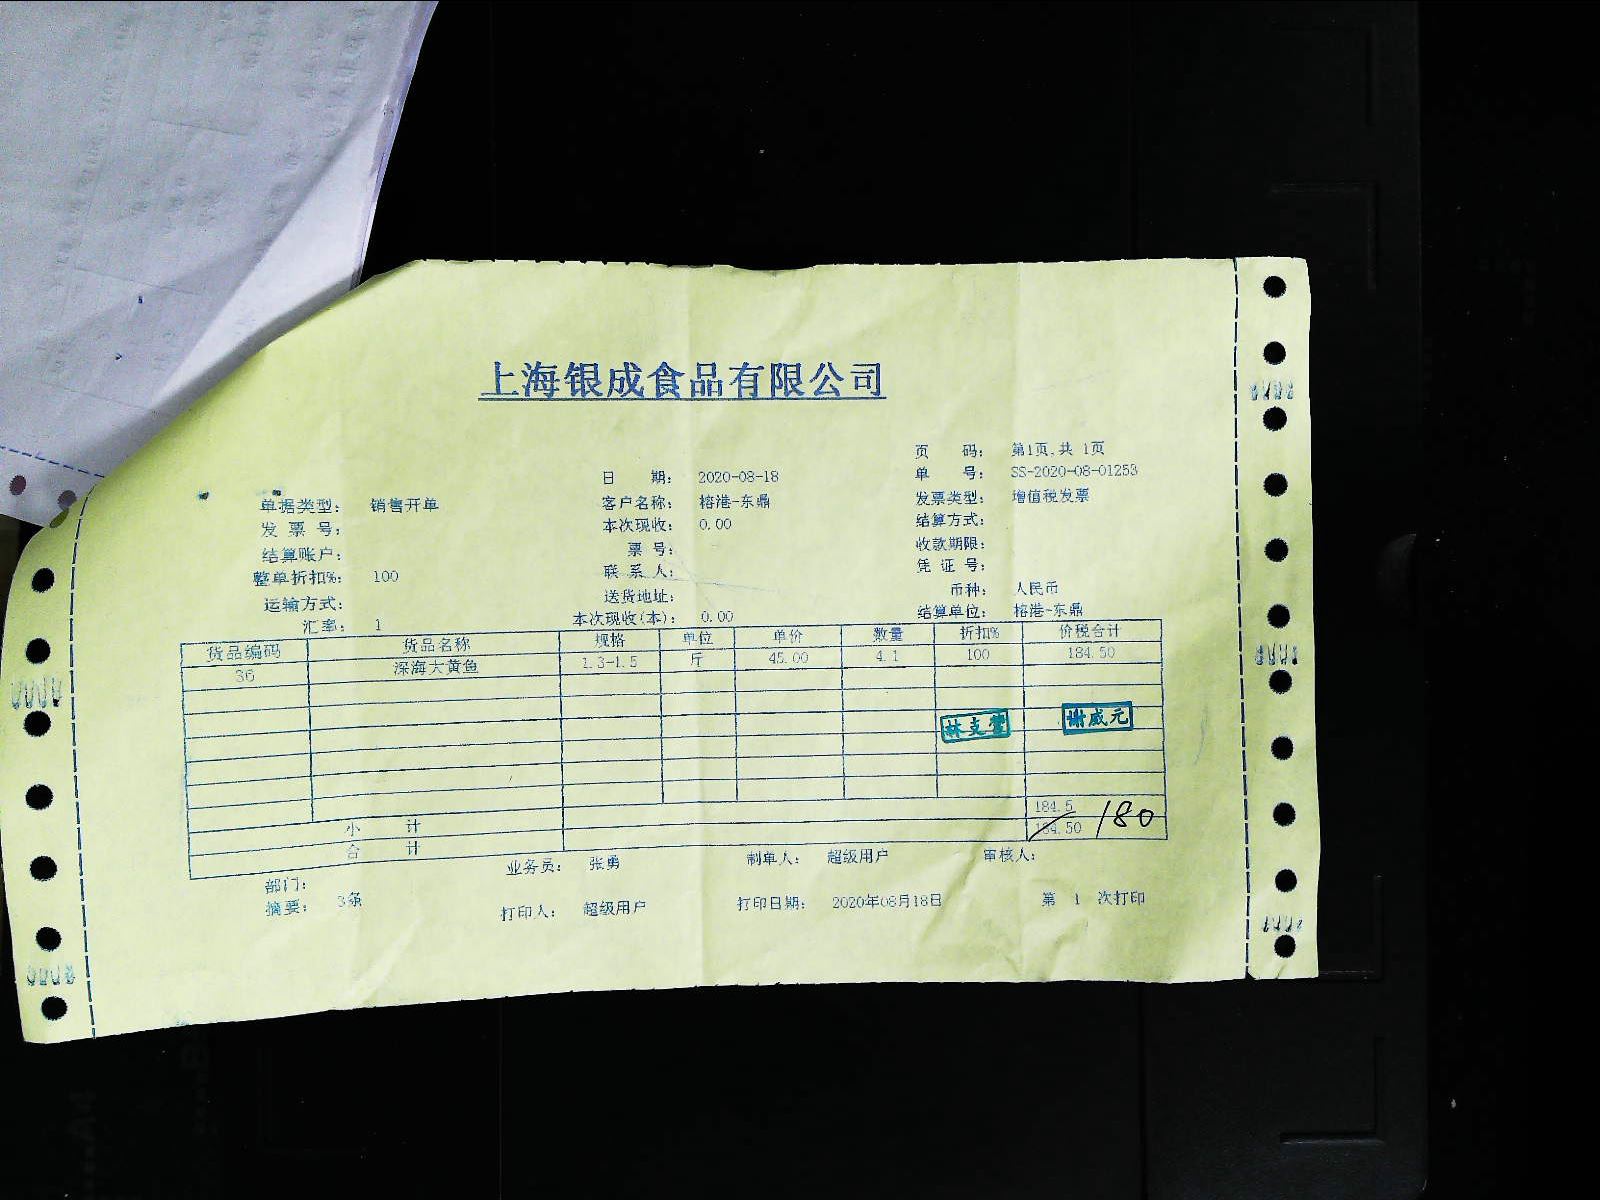 上海银成食品有限公司
页 码: 第1页,共 1页
日 期: 2020-08-18 单 号: SS-2020-08-01253
单据类型: 销售开单 客户名称: 榕港-东鼎 发票类型: 增值税发票
发 票 号: 本次现收: 0.00 结算方式:
结算账户: 票 号: 收款期限:
整单折扣%: 100 联 系 人: 凭 证 号:
运输方式: 送货地址: 币种: 人民币
汇率: 1 本次现收(本): 0.00 结算单位: 榕港-东鼎
货品编码 货品名称 规格 单位 单价 数量 折扣% 价税合计
36 深海大黄鱼 1.3-1.5 斤 45.00 4.1 100 184.50
谢威元
小 计 184.5
合 计 184.50 180
部门: 业务员: 张勇 制单人: 超级用户 审核人:
摘要: 3条 打印人: 超级用户 打印日期: 2020年08月18日 第 1 次打印